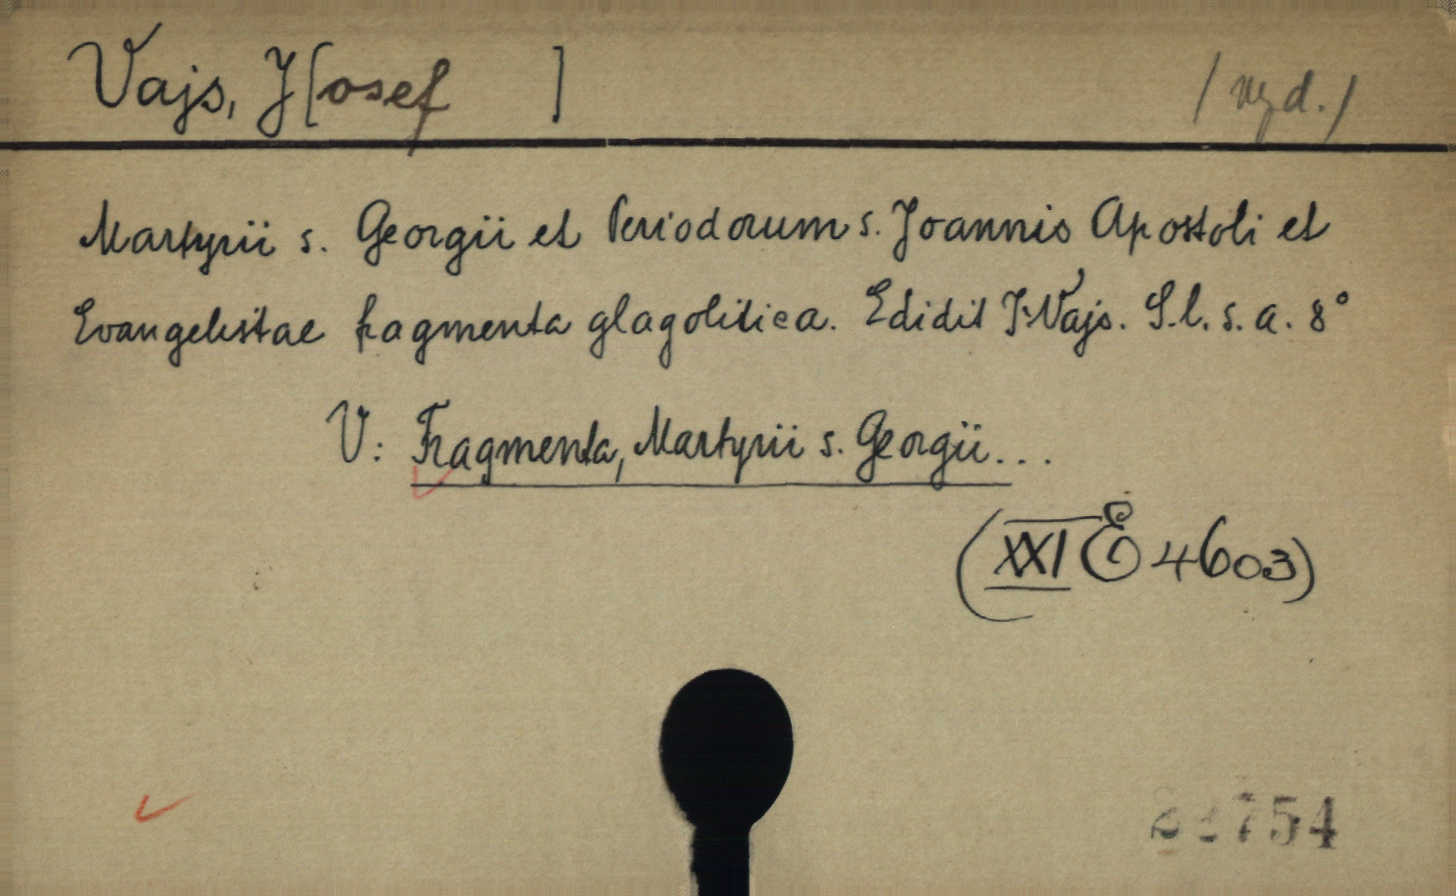 Vajs, J[osef ]
/vyd./
Martyrii s. Georgii et Periodorum s. Joannis Apostoli et
Evangelistae fragmenta glagolitica. Edidit J. Vajs. S.l. s. a. 8°
V: Fragmenta, Martyrii s. Georgii...
(XXI E 4603)